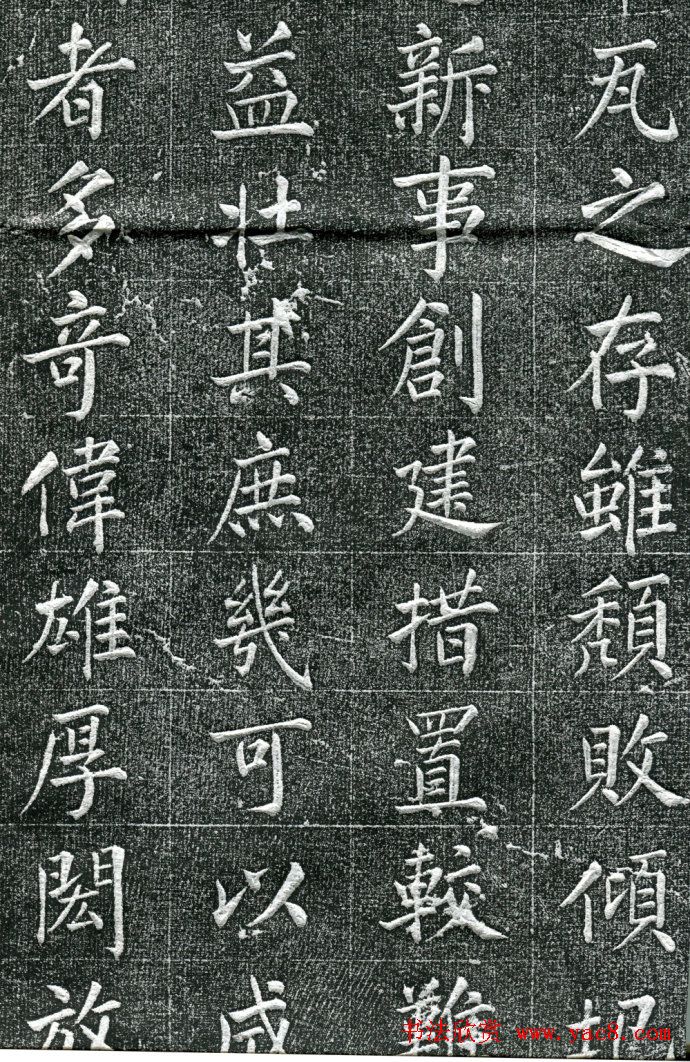 瓦之存雖頹敗傾
新事創建措置較難
益壯其庶幾可以
者多奇偉雄厚閎放
书法欣赏 www.yac8.com